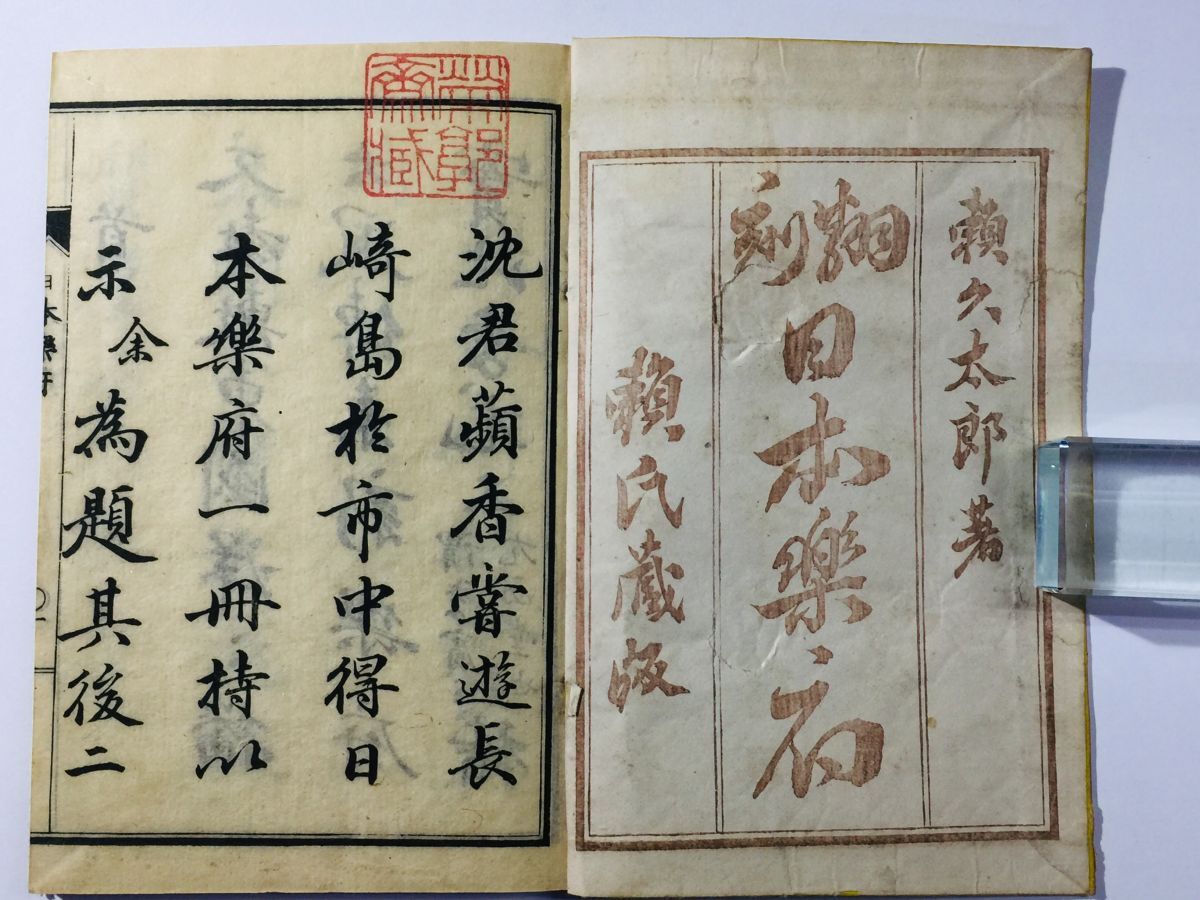 賴久太郎著
翻刻日本樂府
賴氏藏版
沈君蘋香嘗遊長
崎島於市中得日
本樂府一冊持以
示余為題其後二
日本樂府